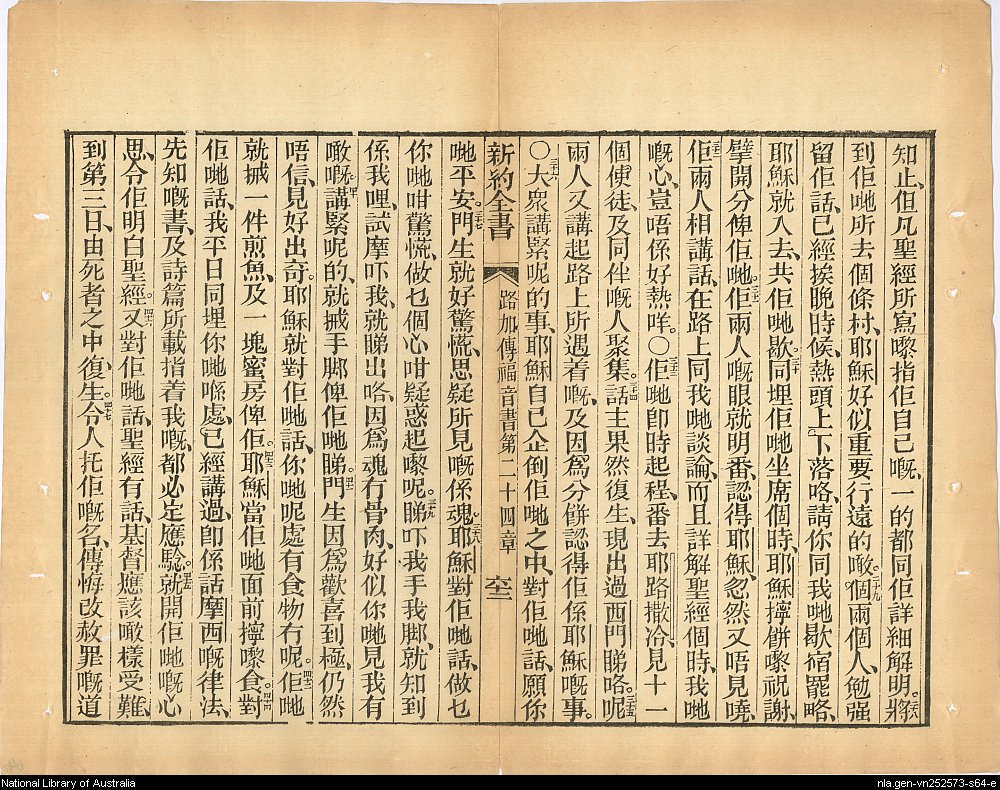 知止、但凡聖經所寫嚟指佢自己嘅、一的都同佢詳細解明。將
到佢哋所去個條村、耶穌好似重要行遠的噉。個兩個人、勉强
留佢話、已經挨晚時候、熱頭上下落咯、請你同我哋歇宿罷略、
耶穌就入去、共佢哋歇。同埋佢哋坐席個時、耶穌擰餅嚟祝謝、
擘開分俾佢哋。佢兩人嘅眼就明番認得耶穌、忽然又唔見曉、
佢兩人相講話、在路上同我哋談論、而且詳解聖經個時、我哋
嘅心、豈唔係好熱咩。〇佢哋卽時起程、番去耶路撒冷、見十一
個使徒、及同伴嘅人聚集。話主果然復生、現出過西門睇咯。呢
兩人又講起路上所遇着嘅、及因爲分餅認得佢係耶穌嘅事。
〇大衆講緊呢的事、耶穌自己企倒佢哋之中、對佢哋話、願你
新約全書 路加傳福音書第二十四章 六十二
哋平安。門生就好驚慌、思疑所見嘅係魂。耶穌對佢哋話、做乜
你哋咁驚慌、做乜個心咁疑惑起嚟呢。睇吓我手我脚、就知到
係我哩、試摩吓我、就睇出咯、因爲魂冇骨肉、好似你哋見我有
噉嘅。講緊呢的、就搣手脚俾佢哋睇。門生因爲歡喜到極、仍然
唔信、見好出奇。耶穌就對佢哋話、你哋呢處有食物冇呢。佢哋
就搣一件煎魚、及一塊蜜房俾佢。耶穌當佢哋面前擰嚟食。對
佢哋話、我平日同埋你哋喺處、已經講過、卽係話摩西嘅律法、
先知嘅書、及詩篇所載指着我嘅、都必定應驗。就開佢哋嘅心
思、令佢明白聖經。又對佢哋話、聖經有話、基督應該噉樣受難、
到第三日、由死者之中復生。令人托佢嘅名、傳悔改赦罪嘅道
National Library of Australia
nla.gen-vn252573-s64-e